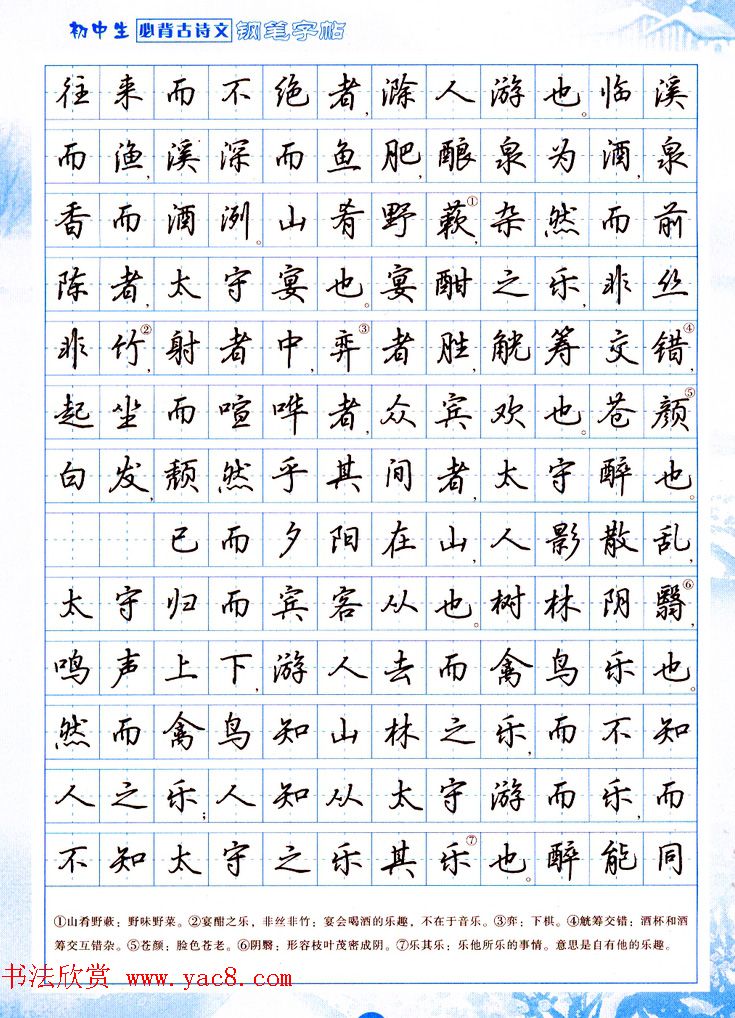 初中生 必背古诗文 钢笔字帖
往来而不绝者，滁人游也。临溪
而渔，溪深而鱼肥，酿泉为酒，泉
香而酒洌。山肴野蔌①，杂然而前
陈者，太守宴也。宴酣之乐，非丝
非竹②，射者中，弈③者胜，觥筹交错④，
起坐而喧哗者，众宾欢也。苍颜⑤
白发，颓然乎其间者，太守醉也。
已而夕阳在山，人影散乱，
太守归而宾客从也。树林阴翳⑥，
鸣声上下，游人去而禽鸟乐也。
然而禽鸟知山林之乐，而不知
人之乐；人知从太守游而乐，而
不知太守之乐其乐⑦也。醉能同
①山肴野蔌：野味野菜。②宴酣之乐，非丝非竹：宴会喝酒的乐趣，不在于音乐。③弈：下棋。④觥筹交错：酒杯和酒
筹交互错杂。⑤苍颜：脸色苍老。⑥阴翳：形容枝叶茂密成阴。⑦乐其乐：乐他所乐的事情。意思是自有他的乐趣。
书法欣赏 www.yac8.com